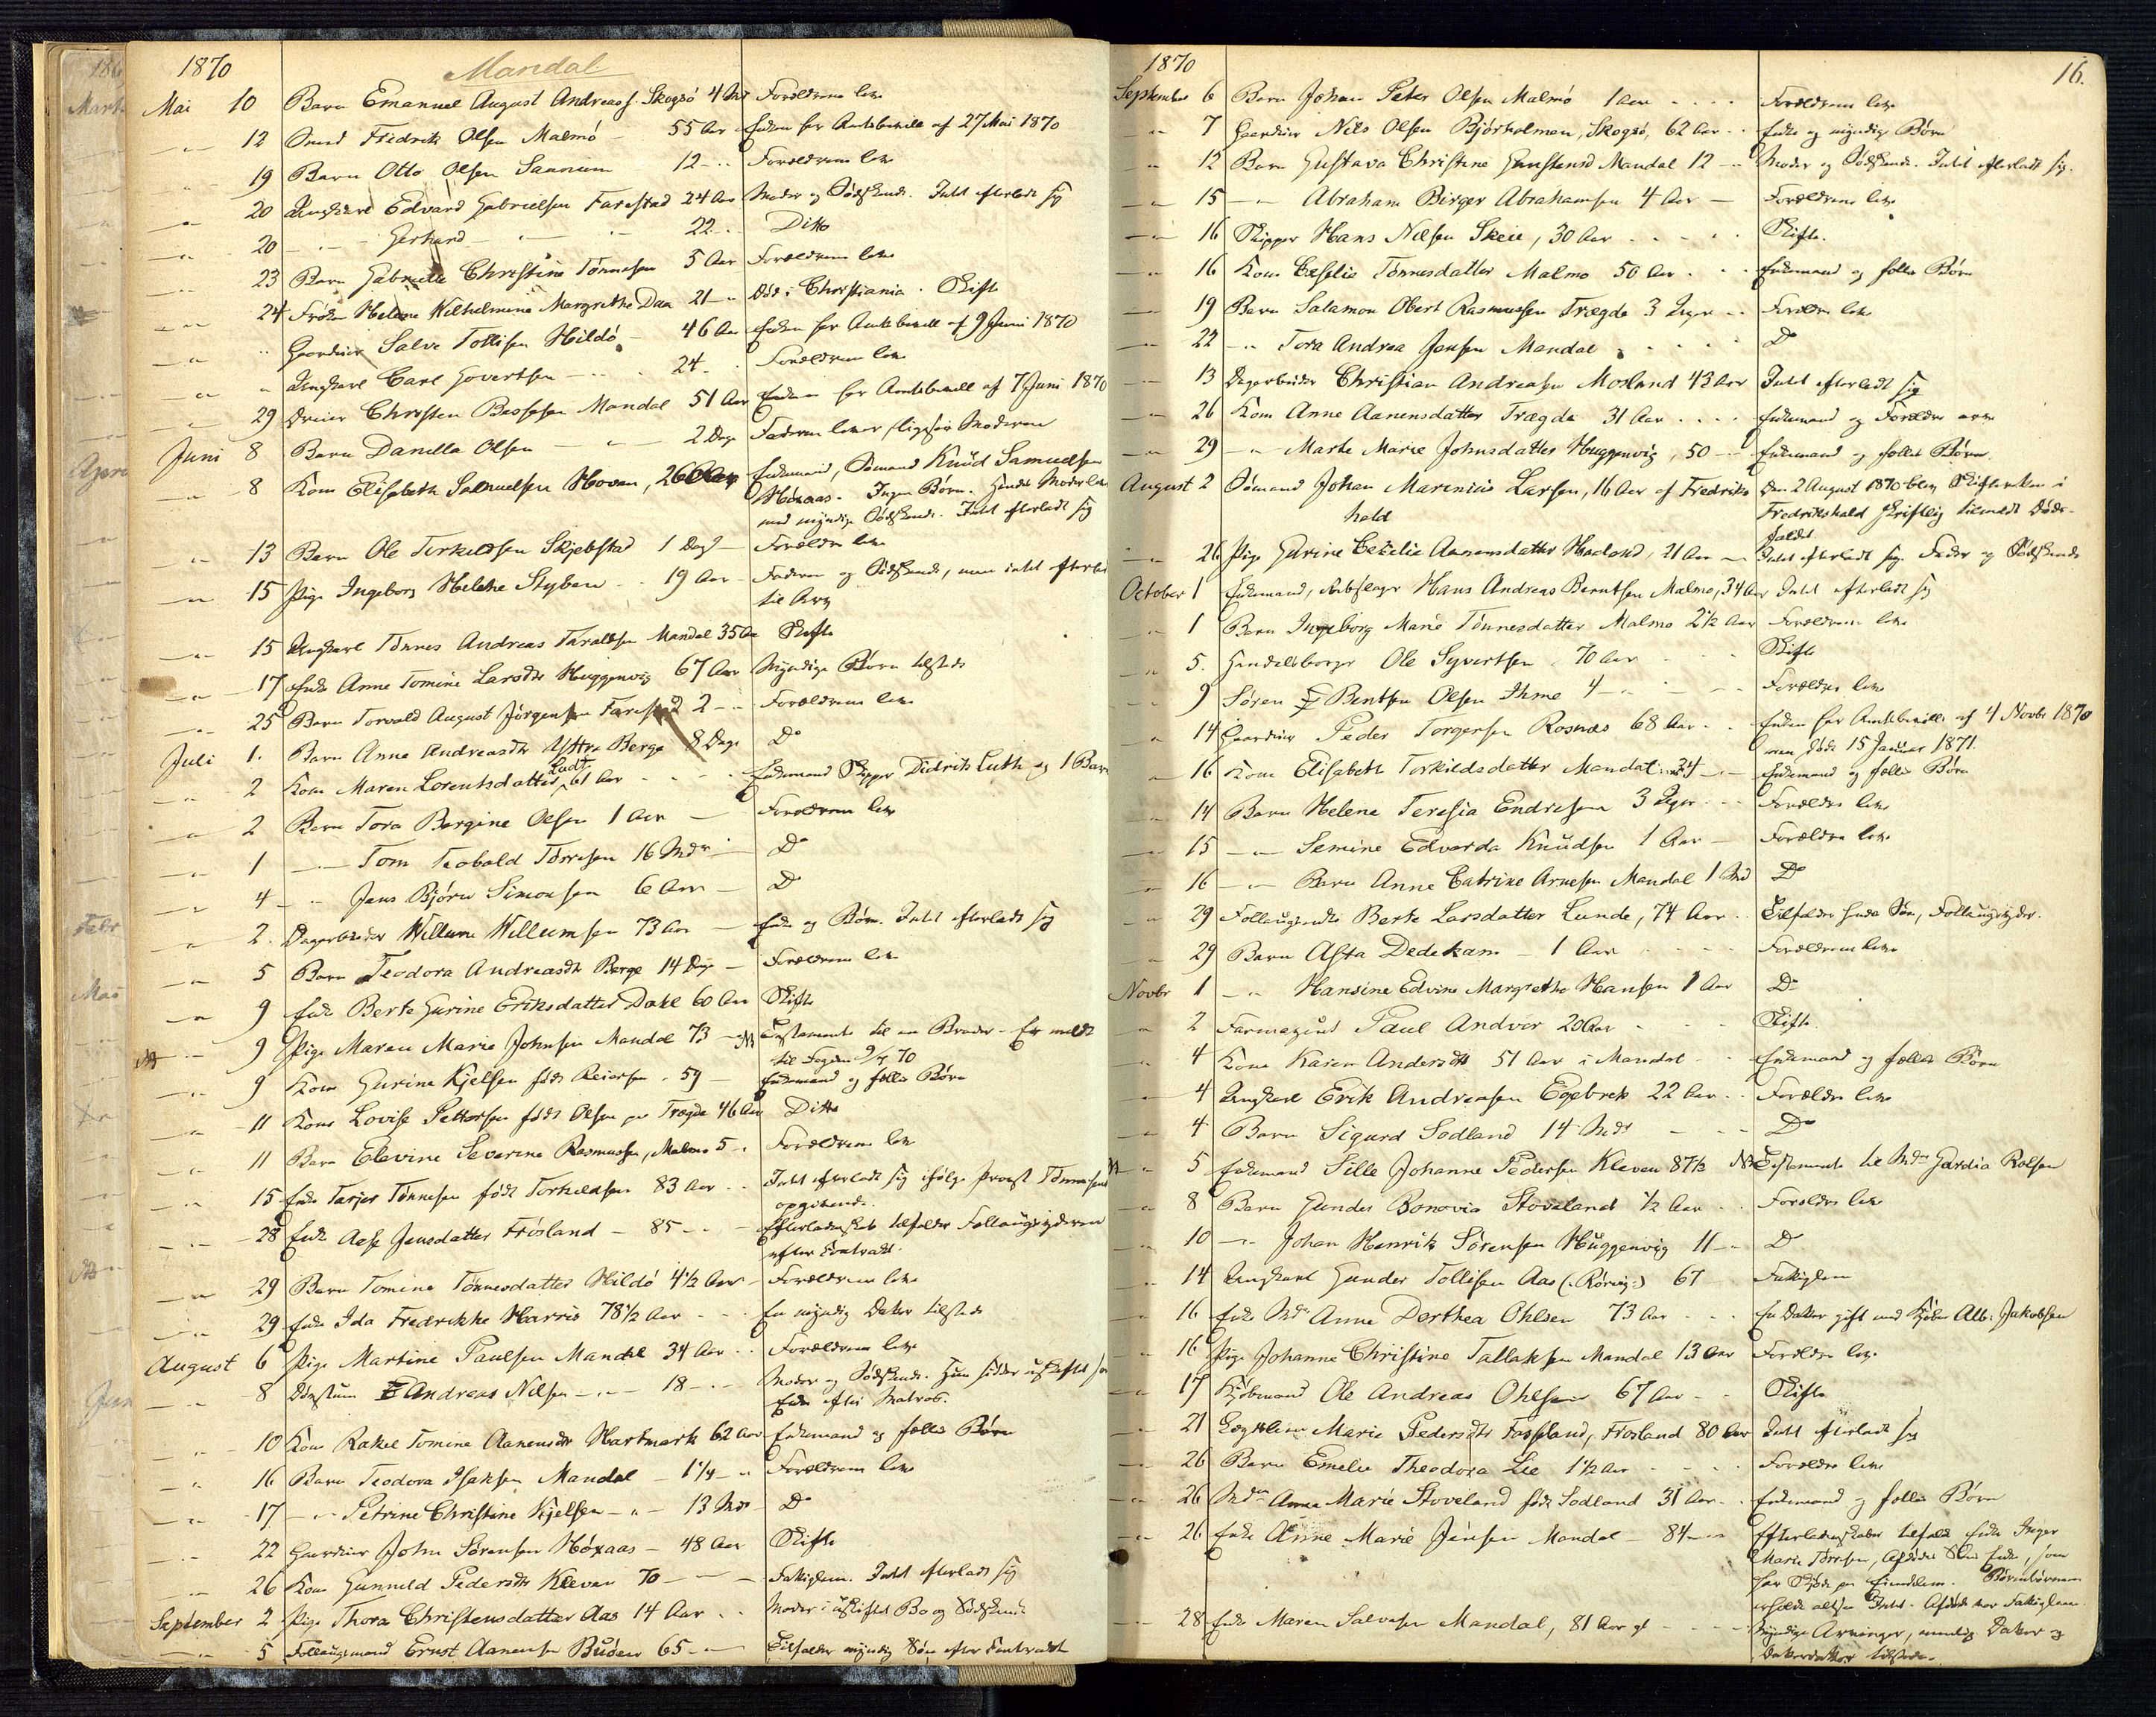 1870
Mandal
Mai 10 Barn Emanuel August Andreass. Skogsö 4 Md Forældrene leve
-"- 12 Smed Fredrik Olsen Malmö - 55 Aar Enken har Amtsbevill af 27 Mai 1870
19 Barn Otto Olsen Sannum 12 - " Forældrene leve
-"- 20 Ungkarl Edvard Gabrielsen Farestad 24 Aar Moder og Sødskende. Intet efterladt sig
-"- 20 -"- Gerhard -"- 22 " Ditto
-"- 23 Barn Gabrielle Christine Tønnesen 5 Aar Forældrene leve
-"- 24 Frøken Helene Wilhelmine Margrethe Daa 21 -"- Død i Christiania. Skifte
-"- " Gaardbr Salve Tollisen Hildö - 46 Aar Enken har Amtsbevill af 9 Juni 1870
-"- " Ungkarl Carl Govertsen - 24 - Forældrene leve
-"- 29 Dreier Christen Bessesen Mandal 51 Aar Enken har Amtsbevill af 7 Juni 1870
Juni 8 Barn Danilla Olsen -"- 2 Dage Faderen lever, ligesaa Moderen
-"- 8 Kone Elisabeth Salmuelsen Hovan, 26 Aar Enkemand, Sømand Knud Samuelsen
Høxaas. Ingen Børn. Hendes Moder lever
med myndige Sødskende. Intet efterladt sig
-"- 13 Barn Ole Terkeldsen Skjebstad 1 Dag - Forældre leve
-"- 15 Pige Ingeborg Helene Styben - 19 Aar - Faderen og Sødskende, men intet efterladt
til Arv
-"- 15 Ungkarl Tønnes Andreas Taraldsen Mandal 35 Aar Skifte
-"- 17 Enke Anne Tomine Larsdtr Huggenvig 67 Aar Myndige Børn tilstede
-"- 25 Barn Torvald August Jørgensen Farestad 2 - " Forældrene leve
Juli 1. Barn Anne Andreasdtr Berge 8 Dage Do
-"- 2 Kone Maren Lorentsdatter Ludt, 61 Aar Enkemand Skipper Didrik Luth og 1 Barn
-"- 2 Barn Tora Bergine Olsen 1 Aar - Forældrene leve
-"- 1 -"- Tom Teobald Tørresen 16 Mdr - Do
-"- 4 -"- Jens Bjørn Simonsen 6 Aar - Do
-"- 2. Dagarbeider Willum Willumsen 73 Aar - Enke og Børn. Intet efterladt sig
-"- 5 Barn Teodora Andreasdtr Berge 14 Dage - Forældrene leve
-"- 9 Enke Berte Gurine Eriksdatter Dahl 60 Aar Skifte
NB -"- 9 Pige Maren Marie Johnsen Mandal 73 - NB Testamente til en Broder - Er meldt
til Fogden 9/7 70
-"- 9 Kone Gurine Kjelsen født Reiersen - 59 - Enkemand og fælles Børn
-"- 11 Kone Lovise Pettersen født Olsen paa Trægde 46 Aar Ditto
-"- 11 Barn Elevine Severine Rasmussen, Malmø 5 - " Forældrene leve
-"- 15 Enke Tarjer Tønnesen født Torkeldsen 83 Aar - Intet efterladt sig ifølge Provst Tønnesens
opgivende.
-"- 28 Enke Aase Jensdatter Frøsland - 85 - " Efterladenskab tilfalder Føllaugsyderen
efter Contract.
-"- 29 Barn Tomine Tønnesdatter Hildö 4½ Aar - Forældrene leve
-"- 29 Enke Ida Fredrikke Harris 78½ Aar - En myndig Datter tilstede
August 6 Pige Martine Paulsen Mandal 34 Aar - Forældrene leve
-"- 8 Andreas Nilsen -"- 18 - " Moder og Sødskende. Hun sidder uskiftet
-"- 10 Kone Rakel Tomine Aanensdtr Hartmark 62 Aar Enkemand og fælles Børn
-"- 16 Barn Teodora Isaksen Mandal - 1¼ - " Forældrene leve
-"- 17 -"- Petrine Christine Kjelsen -"- 13 Mdr Do
-"- 22 Gaardbr John Sørensen Høxaas - 48 Aar Skifte
-"- 26 Kone Gunnild Pedersdtr Kleven 70 - - Fattiglem. Intet efterladt sig
September 2 Pige Thora Christensdatter Aas 14 Aar - - Moder i uskiftet Bo og Sødskende
-"- 5 Føllaugsmand Ernst Aanensen Buöen 65 -"- Tilfalder myndig Søn efter Contract
1870 16.
September 6 Barn Johan Peter Olsen Malmö 1 Aar - - - - Forældrene leve
-"- 7 Gaardbr Nils Olsen Bjørholmen, Skogsö, 62 Aar - - Enke og myndige Børn
-"- 12 Barn Gustava Christine Mandal 12 -"- Moder og Sødskende. Intet efterladt sig.
-"- 15 -"- Abraham Birger Abrahamsen 4 Aar - Forældrene leve
-"- 16 Skipper Hans Nilsen Skeie, 30 Aar - - - Skifte.
-"- 16 Kone Tønnesdatter Malmø 50 Aar - - - Enkemand og fælles Børn
-"- 19 Barn Salamon Obert Rasmussen Trægde 3 Uger - - Forældre leve
-"- 22 -"- Tora Andrea Jensen Mandal - - - - Do
-"- 13 Dagarbeider Christian Andreasen Mosland 43 Aar Intet efterladt sig
-"- 26 Kone Anne Aanensdatter Trægde 31 Aar - - - - Enkemand og Forældre arve
-"- 29 -"- Marte Marie Johnsdatter Huggenvig, 50 -"- Enkemand og fælles Børn.
August 2 Sømand Johan Marinius Larsen, 16 Aar af Fredriks Den 2 August 1870 blev Skifteretten i
hald Fredrikshald skriftlig tilmeldt Døds-
faldet
-"- 26 Pige Gurine Cecilie Aanensdatter Haaland, 21 Aar - Intet efterladt sig. Fader og Sødskende
October 1 Enkemand, Rebslager Hans Andreas Berntsen Malmø, 34 Aar Intet efterladt sig
-"- 1 Barn Ingeborg Marie Tønnesdatter Malmø 2½ Aar Forældrene leve
-"- 5. Handelsborger Ole Syvertsen - 70 Aar - - Skifte
-"- 9 Søren Bentsen Olsen Ihme 4 - " - - - Forældre leve
-"- 14 Gaardbr Peder Torgersen Rosnæs 68 Aar - - Enken har Amtsbevill. af 4 Novbr 1870
men døde 15 Januar 1871.
-"- 16 Kone Elisabeth Torkildsdatter Mandal 34 - - Enkemand og fælles Børn
-"- 14 Barn Helene Teresia Endresen 3 Uger - - Forældre leve
-"- 15 -"- Semine Edvarda Knudsen 1 Aar - Forældre leve
-"- 16 -"- Barn Anne Catrine Arnesen Mandal 1 Md Do
-"- 29 Føllaugsenke Berte Larsdatter Lunde, 74 Aar - Tilfalder hendes Søn, Føllaugsyder.
-"- 29 Barn Asta Dedekam - 1 Aar - - - - Forældrene leve
Novbr 1 -"- Hansine Edvine Margrethe Hansen 1 Aar Do
-"- 2 Farmazeut Paul Andver 20 Aar - - - Skifte
-"- 4 Kone Karen Andersdtr 51 Aar i Mandal - - Enkemand og fælles Børn
-"- 4 Ungkarl Erik Andreasen Egebrek 22 Aar - - Forældre leve
-"- 4 Barn Sigurd Sodland 14 Mdr - - - Do
NB -"- 5 Enkemand Sille Johanne Pedersen Kleven 87½ NB Testamente til Mdm Gardia Rolsen
-"- 8 Barn Gunder Bonovia Stoveland ½ Aar - - Forældre leve
-"- 10 -"- Johan Henrik Sørensen Huggenvig 11 -"- Do
-"- 14 Ungkarl Gunder Tollisen Aas (:Rørvig:) 67 Fattiglem
-"- 16 Enke Mdm Anne Dorthea Ohlsen 73 Aar - - - En Datter gift med Kjøbm Alb: Jakobsen
-"- 16 Pige Johanne Christine Tallaksen Mandal 13 Aar Forældre leve
-"- 17 Kjøbmand Ole Andreas Ohlsen 67 Aar - - Skifte
-"- 21 Marie Pedersdtr Fasseland, Frøsland 80 Aar Intet efterladt sig
-"- 26 Barn Emelie Theodora Lie 1½ Aar - - - Forældre leve
-"- 26 Mdm Anna Marie Stoveland født Sodland 31 Aar - - Enkemand og fælles Børn
-"- 26 Enke Anne Marie Jensen Mandal - 84 -"- Efterladenskaber tilfalde Enke Inger
Marie Tørresen, Afdødes Søns Enke, som
har Skjøde paa Eiendelene. Børnebørnene
erholde altsaa Intet. Afdøde var Fattiglem.
-"- 28 Enke Maren Salvesen Mandal, 81 Aar gl - - - Myndige Arvinger, nemlig Datter og
Datterdatter tilstede.